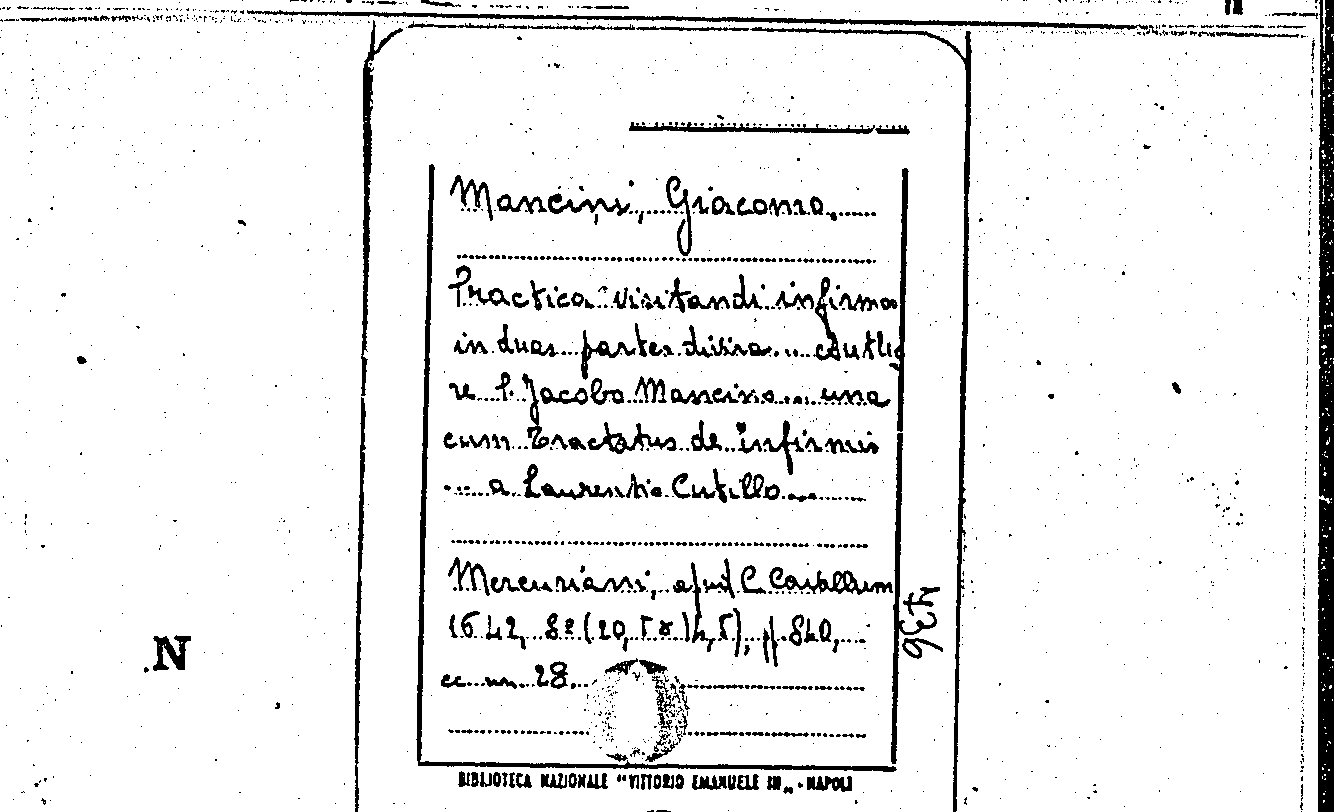 Mancini, Giacomo.
Practica visitandi infirmos
in duas partes divisa... Authο
re P. Jacobo Mancino... una
cum Tractatus de infirmis
... a Laurentio Cutillo...
Mercuriani, apud C. Cavallum
1642, 8º (20,5 x 14,5), pp. 840,
cc. nn. 28.
4736
N
BIBLIOTECA NAZIONALE "VITTORIO EMANUELE III„ - NAPOLI